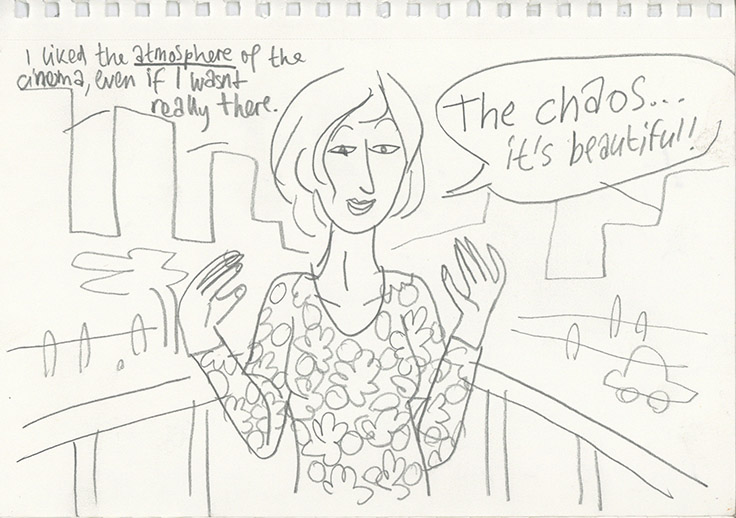 I liked the atmosphere of the
cinema, even if I wasnt
really there.
The chaos...
it's beautiful!